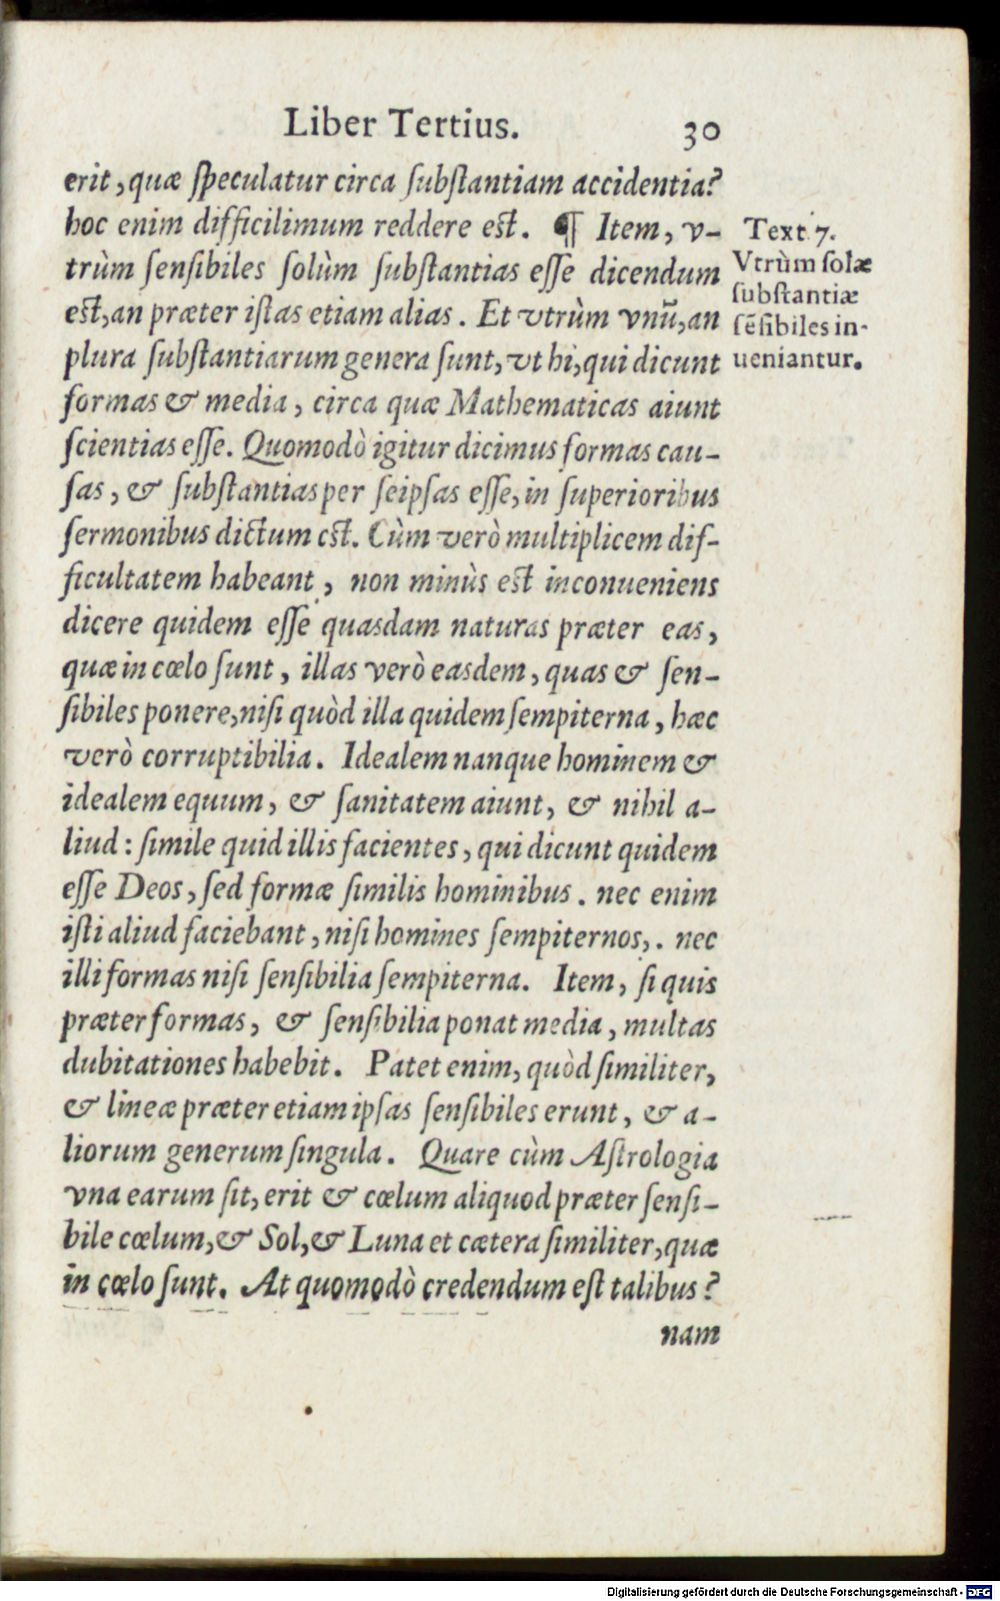 Liber Tertius. 30
erit, quæ ſpeculatur circa ſubſtantiam accidentia?
hoc enim difficilimum reddere eſt. ¶ Item, v-
trùm ſenſibiles ſolùm ſubſtantias eſſe dicendum
eſt, an præter iſtas etiam alias. Et vtrùm vnũ, an
plura ſubſtantiarum genera ſunt, vt hi, qui dicunt
formas & media, circa quæ Mathematicas aiunt
ſcientias eſſe. Quomodò igitur dicimus formas cau-
ſas, & ſubſtantias per ſeipſas eſſe, in ſuperioribus
ſermonibus dictum eſt. Cùm verò multiplicem dif-
ficultatem habeant, non minùs eſt inconueniens
dicere quidem eſſe quasdam naturas præter eas,
quæ in cœlo ſunt, illas verò easdem, quas & ſen-
ſibiles ponere, niſi quòd illa quidem ſempiterna, hæc
verò corruptibilia. Idealem nanque hominem &
idealem equum, & ſanitatem aiunt, & nihil a-
liud: ſimile quid illis facientes, qui dicunt quidem
eſſe Deos, ſed formæ ſimilis hominibus. nec enim
iſti aliud faciebant, niſi homines ſempiternos,. nec
illi formas niſi ſenſibilia ſempiterna. Item, ſi quis
præter formas, & ſenſibilia ponat media, multas
dubitationes habebit. Patet enim, quòd ſimiliter,
& lineæ præter etiam ipſas ſenſibiles erunt, & a-
liorum generum ſingula. Quare cùm Aſtrologia
vna earum ſit, erit & cœlum aliquod præter ſenſi-
bile cœlum, & Sol, & Luna et cætera ſimiliter, quæ
in cœlo ſunt. At quomodò credendum eſt talibus?
nam
Text 7.
Vtrùm ſolæ
ſubſtantiæ
ſẽſibiles in-
ueniantur.
Digitalisierung gefördert durch die Deutsche Forschungsgemeinschaft - DFG